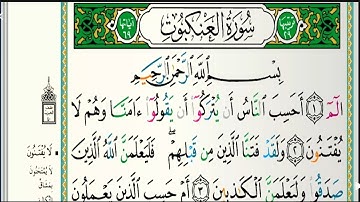 سُورَةُ العَنكَبُوتِ
بِسْمِ ٱللَّهِ ٱلرَّحْمَٰنِ ٱلرَّحِيمِ
الٓمٓ ١ أَحَسِبَ ٱلنَّاسُ أَن يُتْرَكُوٓا۟ أَن يَقُولُوٓا۟ ءَامَنَّا وَهُمْ لَا
يُفْتَنُونَ ٢ وَلَقَدْ فَتَنَّا ٱلَّذِينَ مِن قَبْلِهِمْ ۖ فَلَيَعْلَمَنَّ ٱللَّهُ ٱلَّذِينَ
صَدَقُوا۟ وَلَيَعْلَمَنَّ ٱلْكَٰذِبِينَ ٣ أَمْ حَسِبَ ٱلَّذِينَ يَعْمَلُونَ
لَا يُفْتَنُونَ